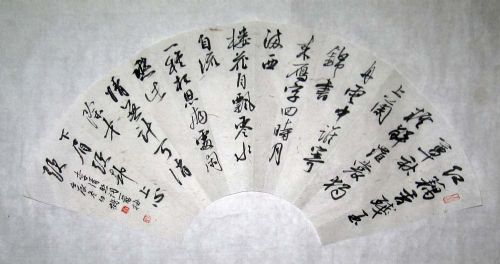 红藕香残玉
簟秋轻解罗裳独
上兰
舟云中谁寄
锦书
来雁字回时月
满西
楼花自飘零水
自流
一种相思两处闲
愁此
情无计可消
除才
下眉头却上心
头